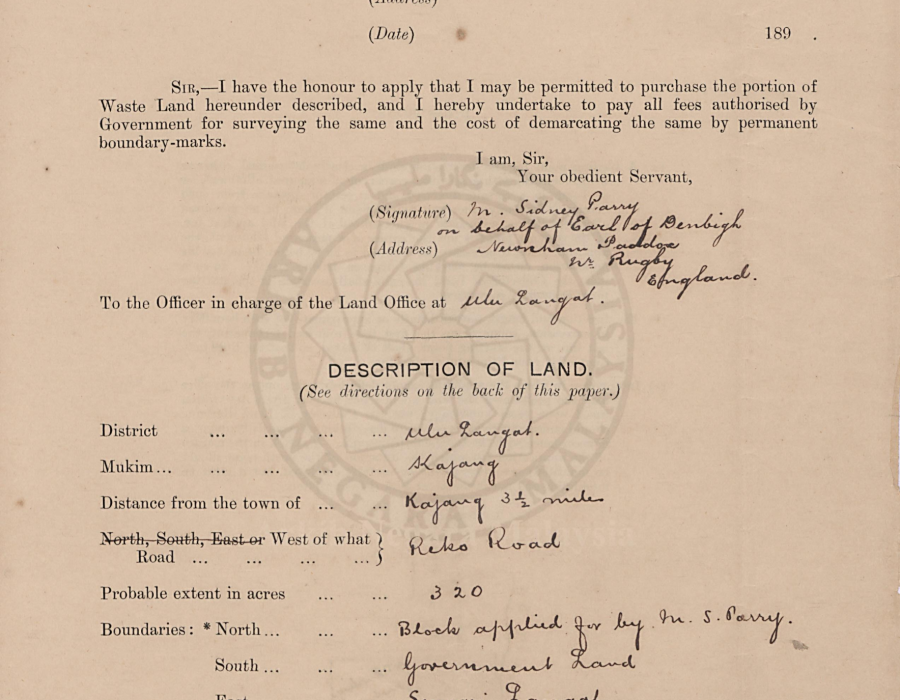 (Address)
(Date) 189 .
SIR,—I have the honour to apply that I may be permitted to purchase the portion of
Waste Land hereunder described, and I hereby undertake to pay all fees authorised by
Government for surveying the same and the cost of demarcating the same by permanent
boundary-marks.
I am, Sir,
Your obedient Servant,
(Signature) M. Sidney Parry
on behalf of Earl of Denbigh
(Address) Newnham Paddox
nr Rugby
England.
To the Officer in charge of the Land Office at Ulu Langat.
DESCRIPTION OF LAND.
(See directions on the back of this paper.)
District ... ... ... ... Ulu Langat.
Mukim... ... ... ... ... Kajang
Distance from the town of ... ... Kajang 3½ miles
North, South, East or West of what } Reko Road
Road ... ... ... ...
Probable extent in acres ... ... 320
Boundaries: * North... ... ... Block applied for by M. S. Parry.
South ... ... ... Government Land
East Langat
ARKIB NEGARA MALAYSIA